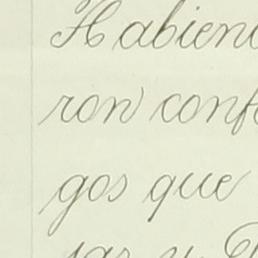 Habien
ron conf
gos que